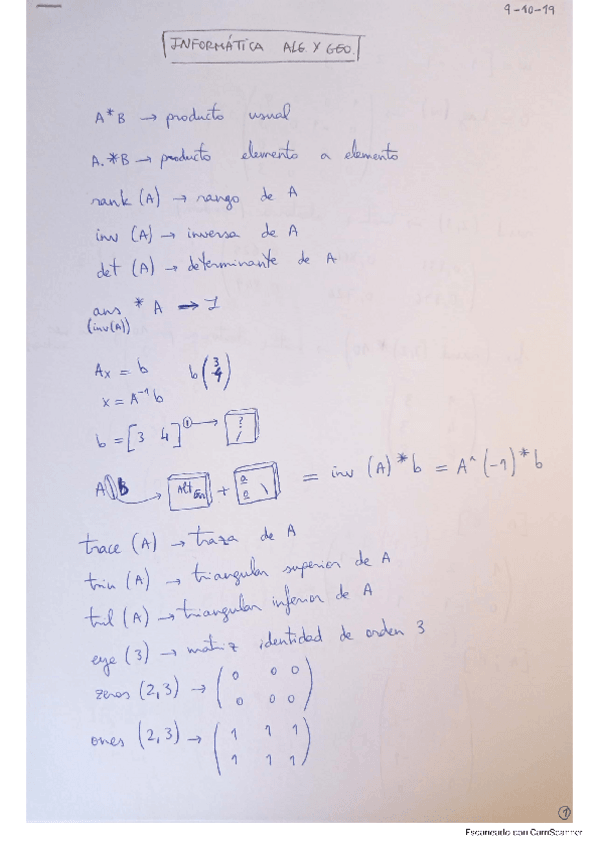 9-10-19
INFORMÁTICA ALG Y GEO.
A*B → producto usual
A.*B → producto elemento a elemento
rank (A) → rango de A
inv (A) → inversa de A
det (A) → determinante de A
ans * A → I
(inv(A))
Ax = b b(3 4)
x = A⁻¹b
b = [3 4]
A\B → Alt Gr + ª º \ = inv (A)*b = A^(-1)*b
trace (A) → traza de A
triu (A) → triangular superior de A
tril (A) → triangular inferior de A
eye (3) → matriz identidad de orden 3
zeros (2,3) → (0 0 0
0 0 0)
ones (2,3) → (1 1 1
1 1 1)
1
Escaneado con CamScanner